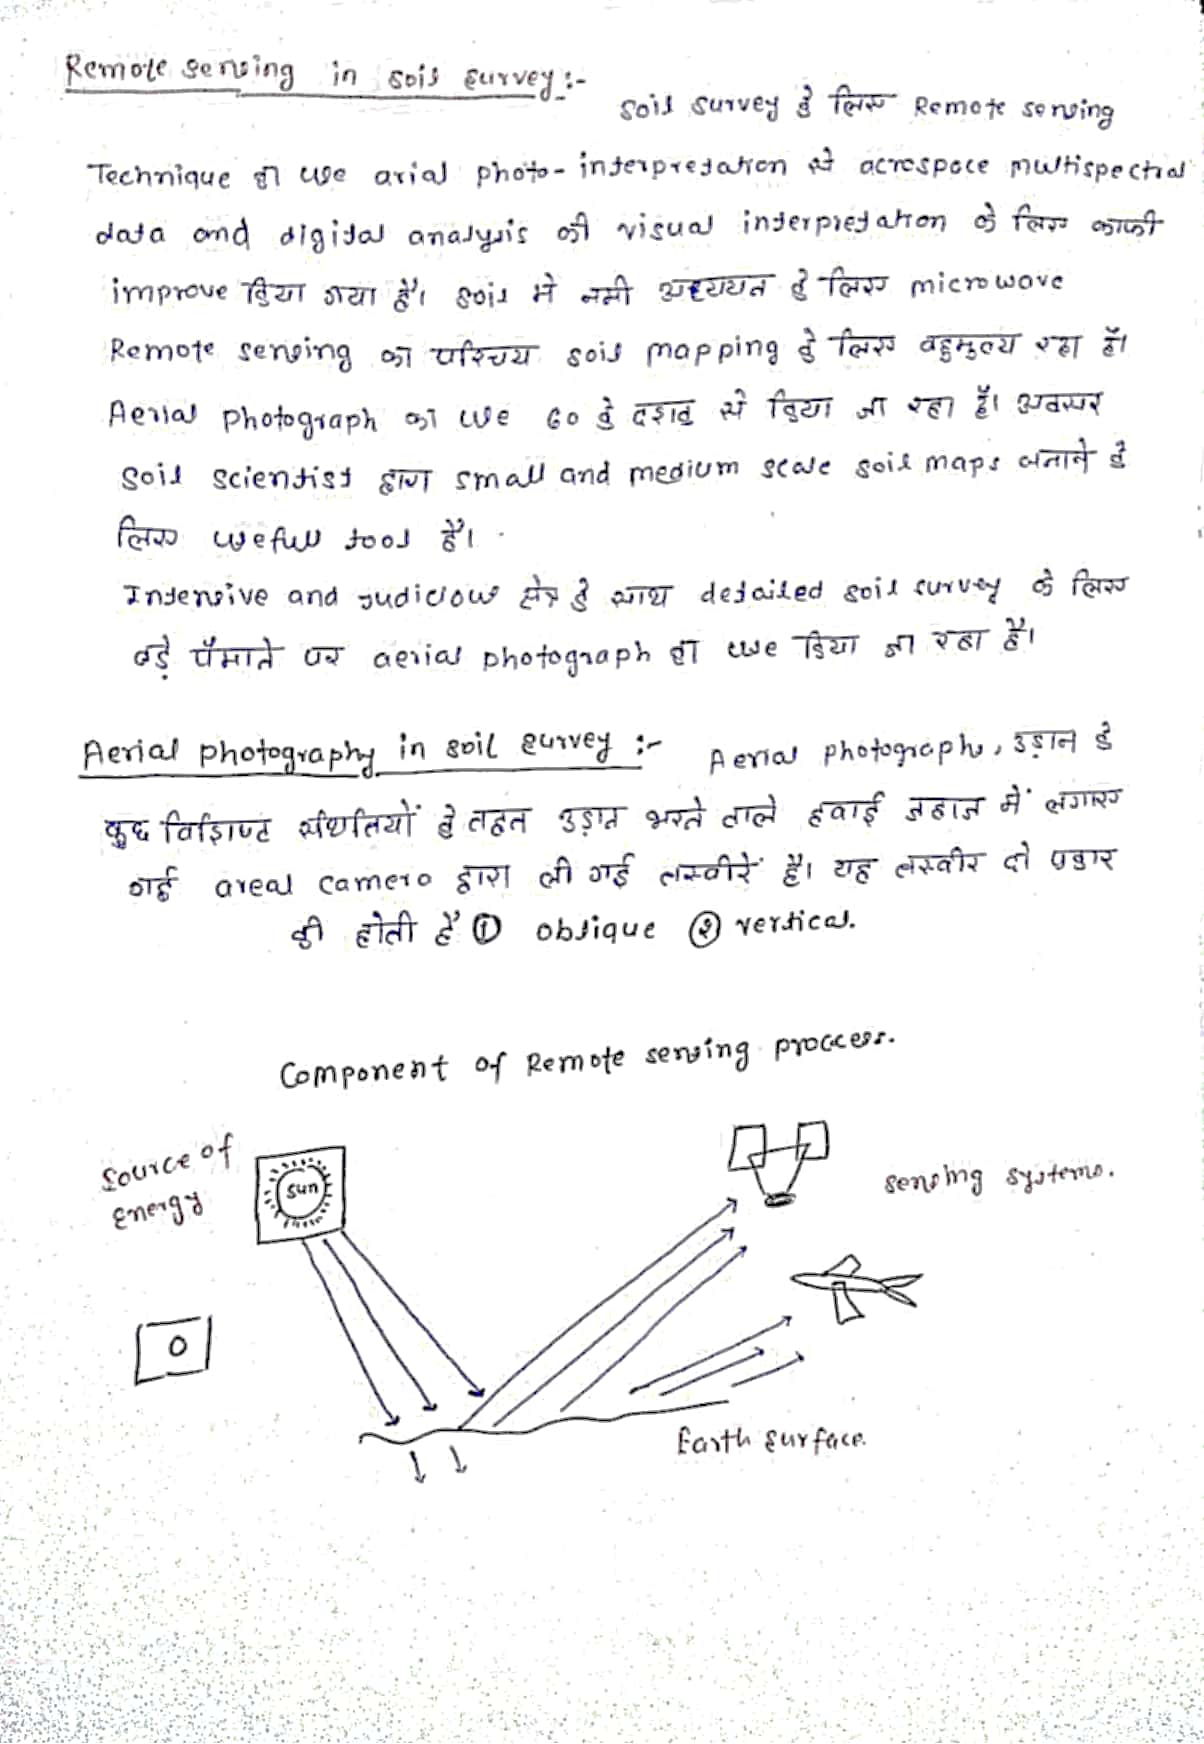 Remote sensing in soil survey :-
soil survey के लिए Remote sensing
Technique का use arial photo-interpretation से acrespace multispectral
data and digital analysis की visual interpretation के लिए काफी
improve किया गया है। soil में नमी अध्ययन के लिए microwave
Remote sensing का परिचय soil mapping के लिए बहुमुल्य रहा है।
Aerial photograph का use 60 के दशक से किया जा रहा है। अक्सर
soil scientist द्वारा small and medium scale soil maps बनाने के
लिए usefull tool है।
Intensive and judicious क्षेत्र के साथ detailed soil survey के लिए
बड़े पैमाने पर aerial photograph का use किया जा रहा है।
Aerial photography in soil survey :- Aerial photographs, उड़ान के
कुछ विशिष्ट स्थितियों के तहत उड़ान भरने वाले हवाई जहाज में लगाए
गई areal camera द्वारा ली गई तस्वीरें है। यह तस्वीर दो प्रकार
की होती हैं ① oblique ② vertical.
Component of Remote sensing proccess.
Source of
Energy
sun
sensing systems.
Earth surface.